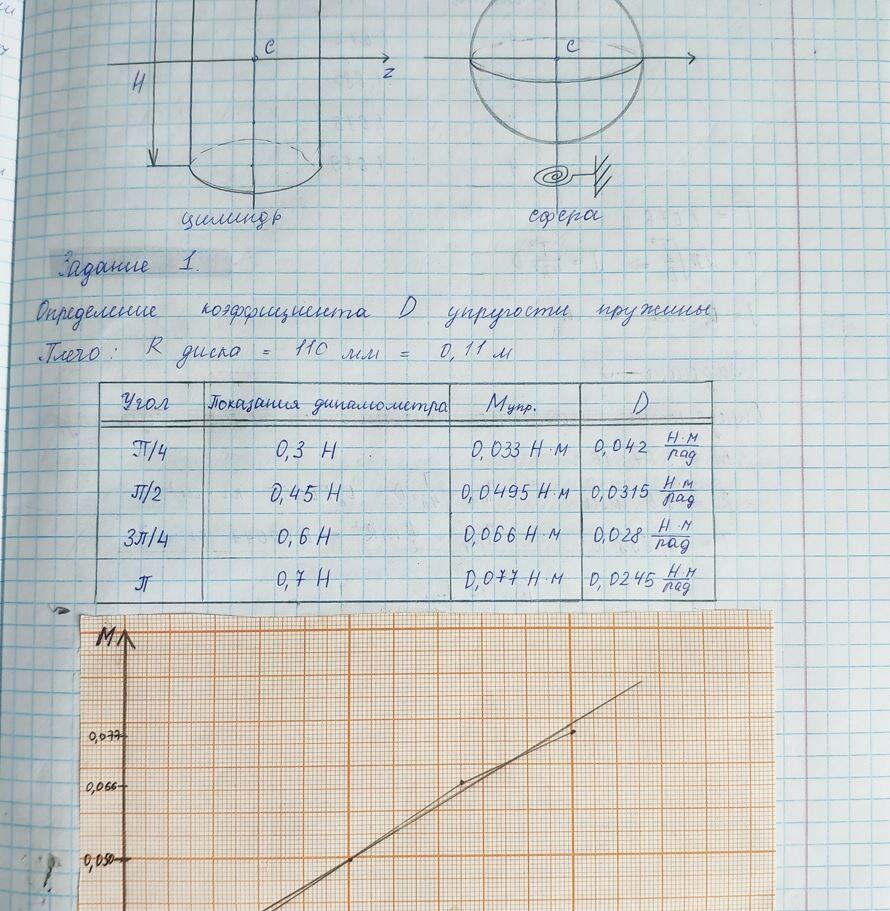 C
C
H
z
цилиндр
сфера
Задание 1.
Определение коэффициента D упругости пружины
Плечо: R диска = 110 мм = 0,11 м
Угол Показания динамометра Mупр. D
П/4 0,3 Н 0,033 Н·м 0,042 Н·м/рад
П/2 0,45 Н 0,0495 Н·м 0,0315 Н·м/рад
3П/4 0,6 Н 0,066 Н·м 0,028 Н·м/рад
П 0,7 Н 0,077 Н·м 0,0245 Н·м/рад
M
0,077
0,066
0,050